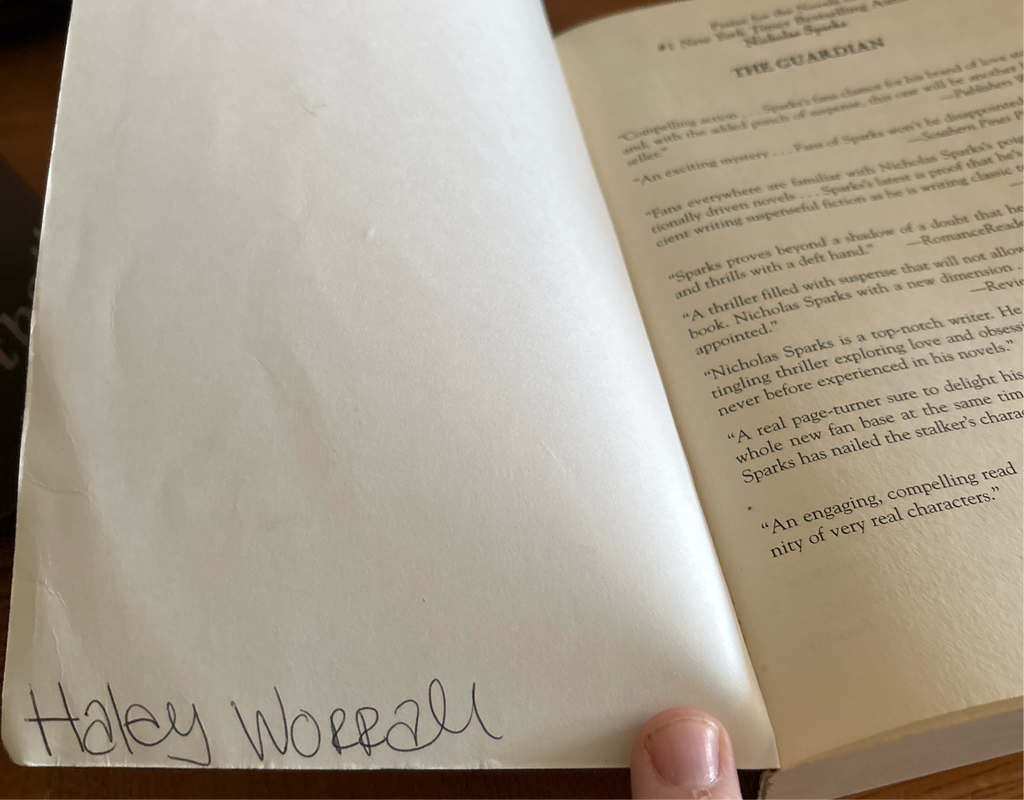 Haley Worrall
Praise for the Novels
#1 New York Times Bestselling
Nicholas Sparks
THE GUARDIAN
"Compelling action . . . Sparks's fans clamor for his brand of love
and, with the added punch of suspense, this one will be another
seller."
—Publishers W
"An exciting mystery . . . Fans of Sparks won't be disappointed
—Southern Pines P
"Fans everywhere are familiar with Nicholas Sparks's
tionally driven novels . . . Sparks's latest is proof that he's
cient writing suspenseful fiction as he is writing classic
"Sparks proves beyond a shadow of a doubt that he
and thrills with a deft hand."
—RomanceReade
"A thriller filled with suspense that will not allow
book. Nicholas Sparks with a new dimension
appointed."
—Revie
"Nicholas Sparks is a top-notch writer. He
tingling thriller exploring love and obsessi
never before experienced in his novels."
"A real page-turner sure to delight his
whole new fan base at the same tim
Sparks has nailed the stalker's charac
"An engaging, compelling read
nity of very real characters."